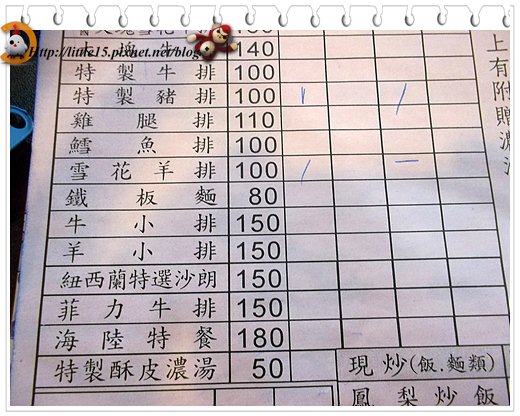 Http://little15.pixnet.net/blog
140
特製牛排 100
特製豬排 100
雞腿排 110
鱈魚排 100
雪花羊排 100
鐵板麵 80
牛小排 150
羊小排 150
紐西蘭特選沙朗 150
菲力牛排 150
海陸特餐 180
特製酥皮濃湯 50
上有附贈濃
現炒(飯.麵類)
鳳梨炒飯